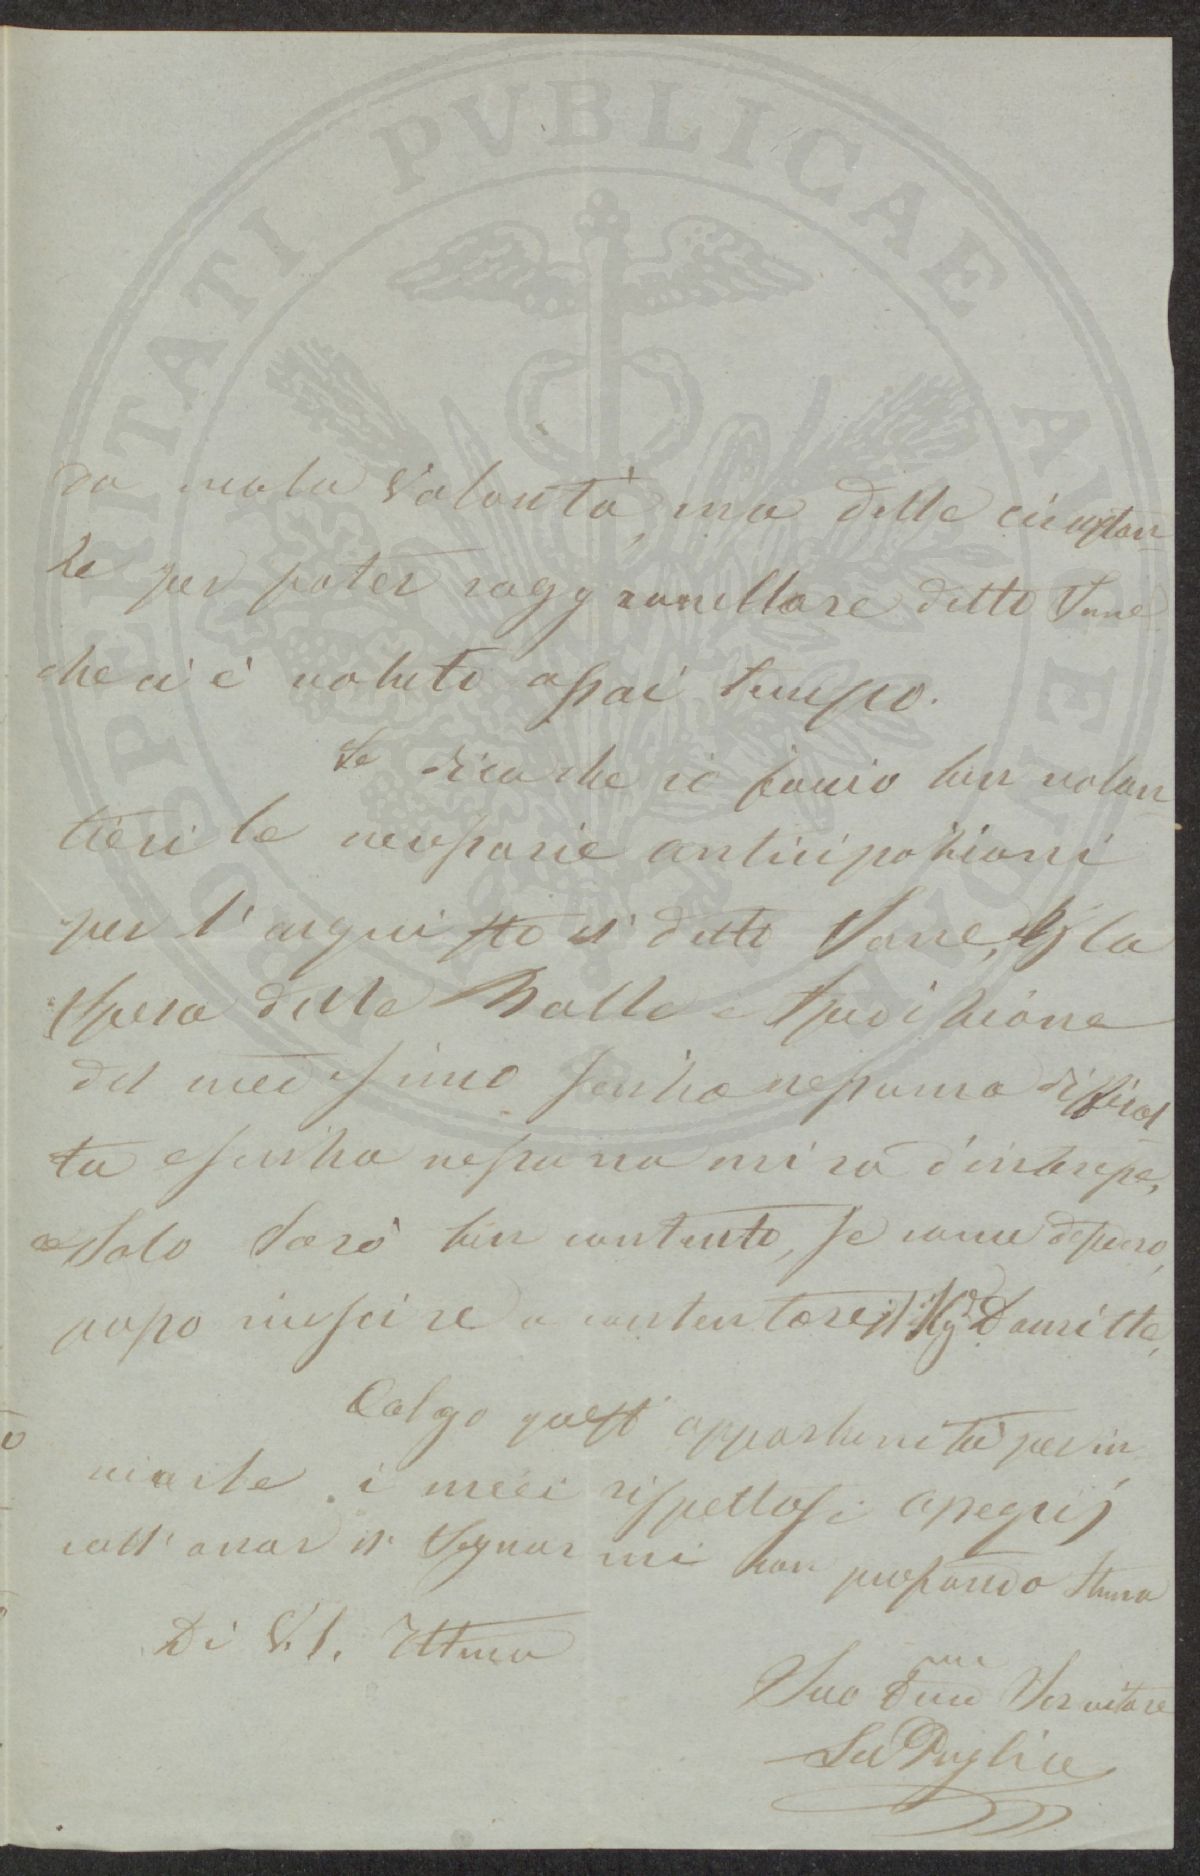 PROSPERITATI PUBLICAE AUGENDAE
da mala Volontà, ma delle circostan
ze per poter raggranellare detto Seme
che ci è voluto assai tempo.
Le dico che io faccio ben volen
tieri le necessarie anticipazioni
per l'acquisto d' detto Seme, la
spesa delle Balle e Spedizione
del medesimo senza nessuna difficol
tà e senza nessuna mira d'interesse,
e Solo Sarò ben contento, se come spero,
posso riuscire a contentare il Sig.r
Colgo quest' opportunità per in
viarle i miei rispettosi ossequij
coll' onor d' Segnarmi con profonda Stima
Di V.S. Illma
Suo Servitore